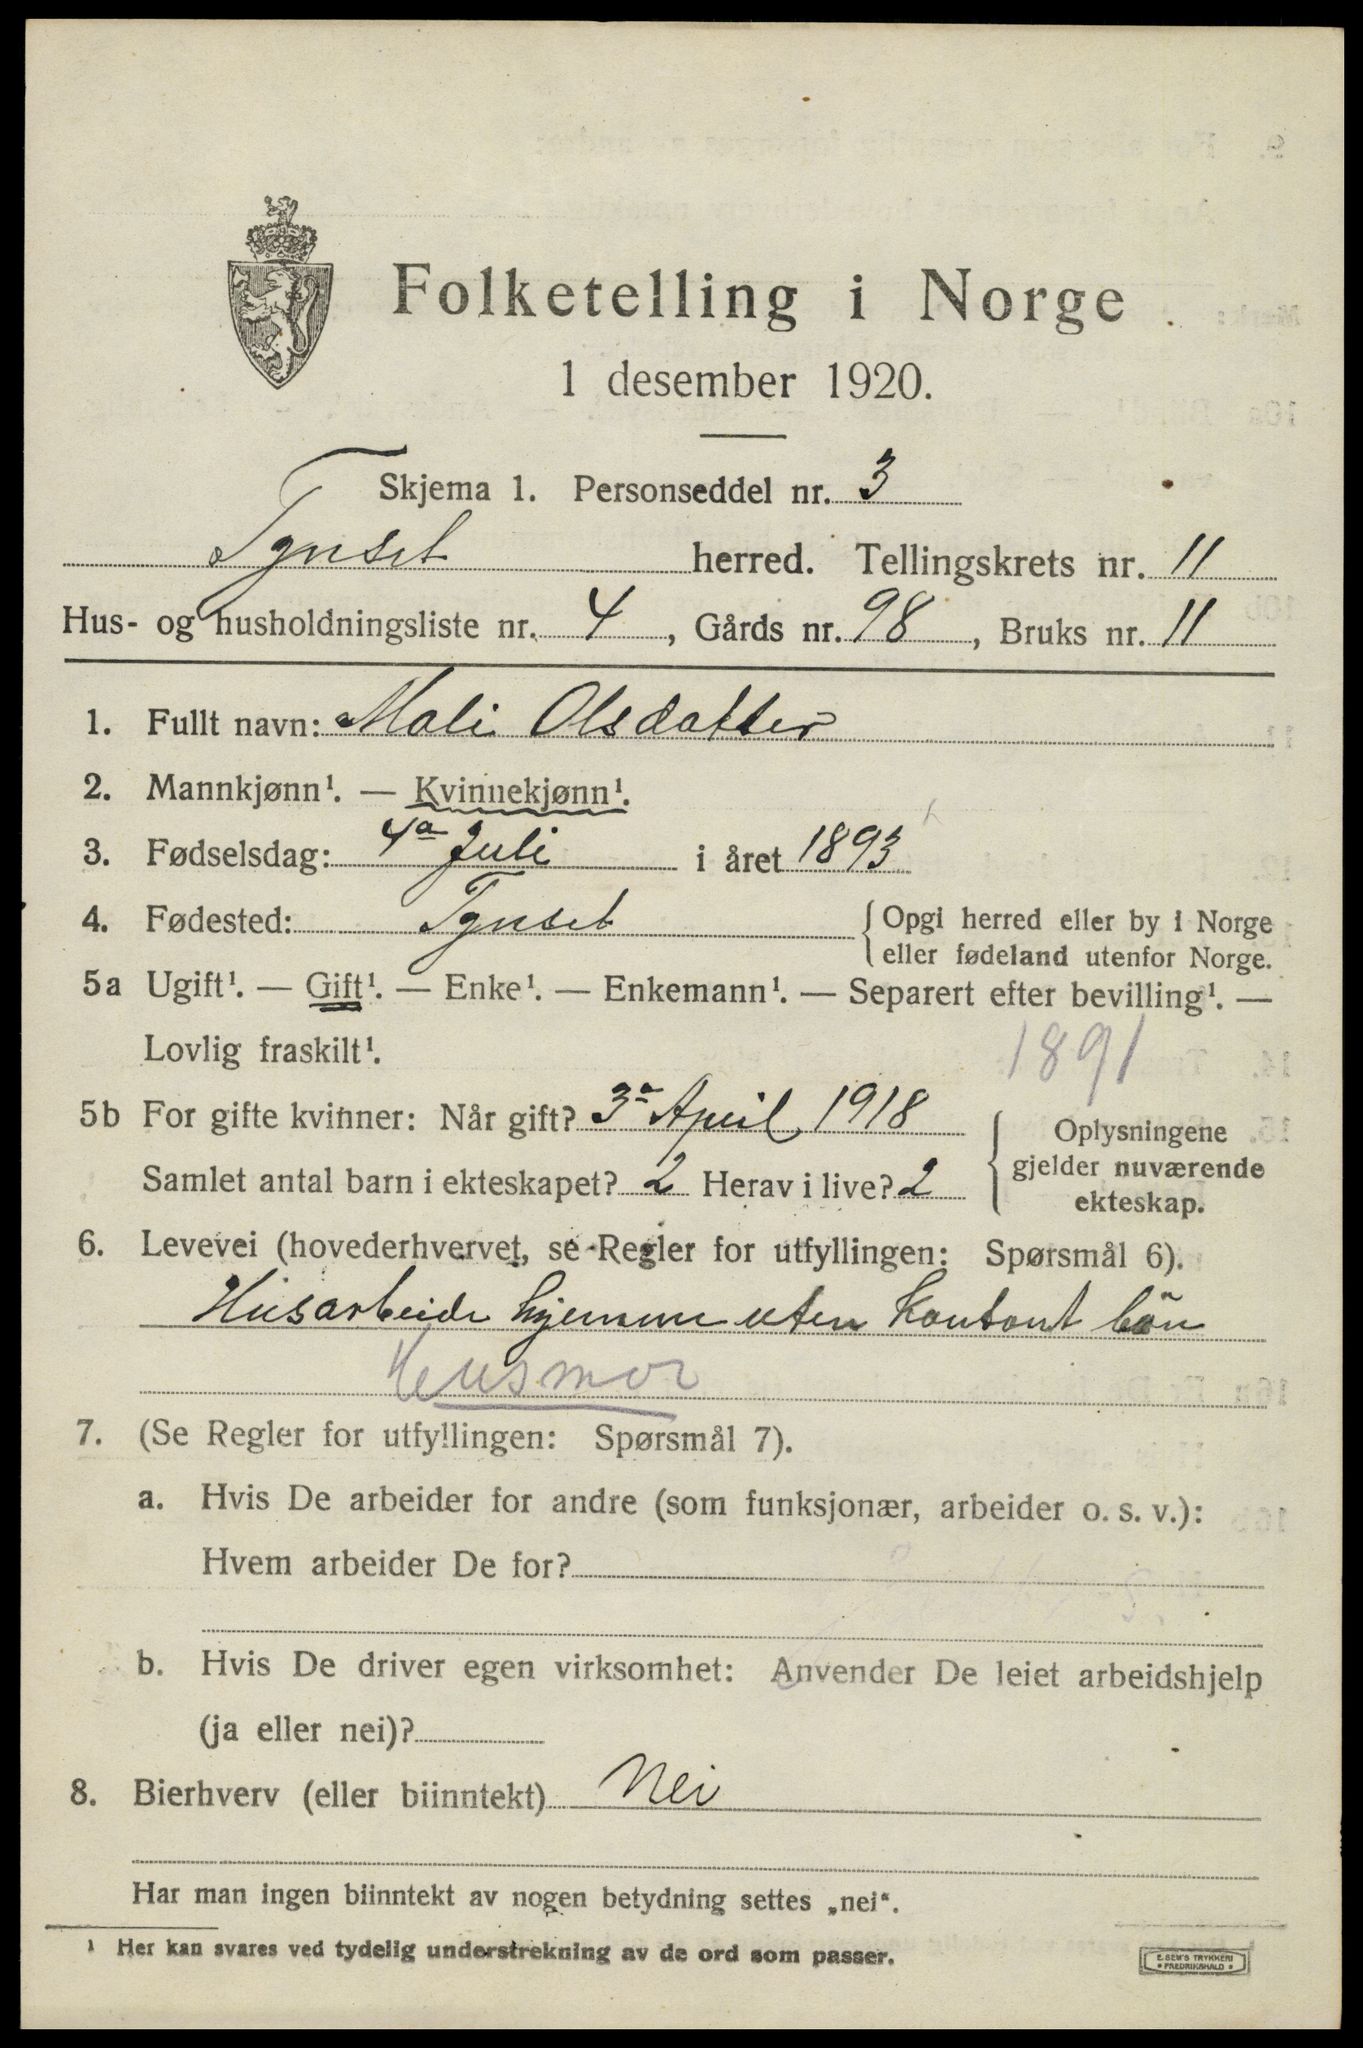 Folketelling i Norge
1 desember 1920.
Skjema 1. Personseddel nr. 3
Tynset herred. Tellingskrets nr. 11
Hus- og husholdningsliste nr. 4, Gårds nr. 98, Bruks nr. 11
1. Fullt navn: Mali Olsdatter
2. Mannkjønn¹. — Kvinnekjønn¹.
3. Fødselsdag: 4a Juli i året 1893
4. Fødested: Tynset { Opgi herred eller by i Norge
eller fødeland utenfor Norge.
5a Ugift¹. — Gift¹. — Enke¹. — Enkemann¹. — Separert efter bevilling¹. —
Lovlig fraskilt¹. 1891
5b For gifte kvinner: Når gift? 3a April 1918
Samlet antal barn i ekteskapet? 2 Herav i live? 2
{ Oplysningene
gjelder nuværende
ekteskap.
6. Levevei (hovederhvervet, se Regler for utfyllingen: Spørsmål 6).
Husarbeide hjemme uten kontant lön
Husmor
7. (Se Regler for utfyllingen: Spørsmål 7).
a. Hvis De arbeider for andre (som funksjonær, arbeider o. s. v.):
Hvem arbeider De for?
b. Hvis De driver egen virksomhet: Anvender De leiet arbeidshjelp
(ja eller nei)?
8. Bierhverv (eller biinntekt) Nei
Har man ingen biinntekt av nogen betydning settes „nei“.
¹ Her kan svares ved tydelig understrekning av de ord som passer.
E. SEM'S TRYKKERI
• FREDRIKSHALD •